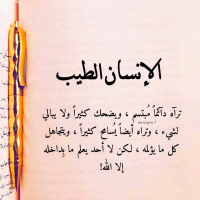 الإنسان الطيب
تراه دآئماً مُبتسم ، ويضحك كثيراً ولا يبالي
لشيء ، وتراه أيضاً يُسامح كثيراً ، ويتجاهل
كل ما يؤلمه ، لكن لا أحد يعلم ما بِداخله
إلا الله!